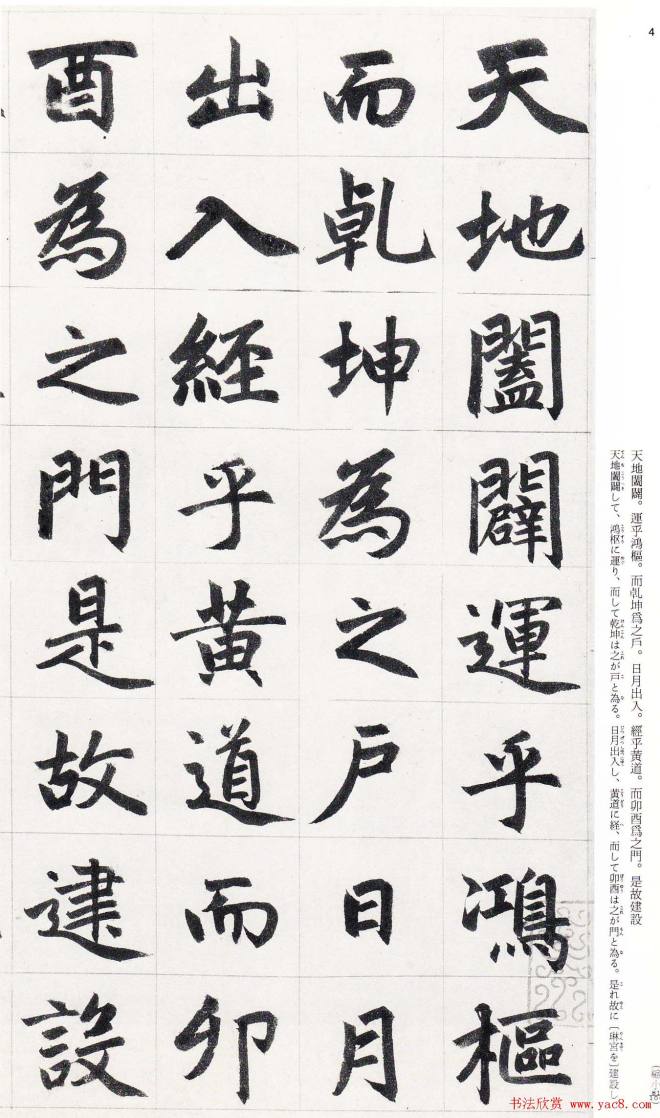 4
天地闔闢。運乎鴻樞。而乹坤爲之戶。日月出入。經乎黄道。而卯酉爲之門。是故建設
天地闔闢して、鴻枢に運り、而して乾坤は之が戸と為る。日月出入し、黄道に経、而して卯酉は之が門と為る。是れ故に〔琳宮を〕建設し
天地闔闢運乎鴻樞
而乹坤為之戶日月
出入經乎黄道而卯
酉為之門是故建設
书法欣赏 www.yac8.com